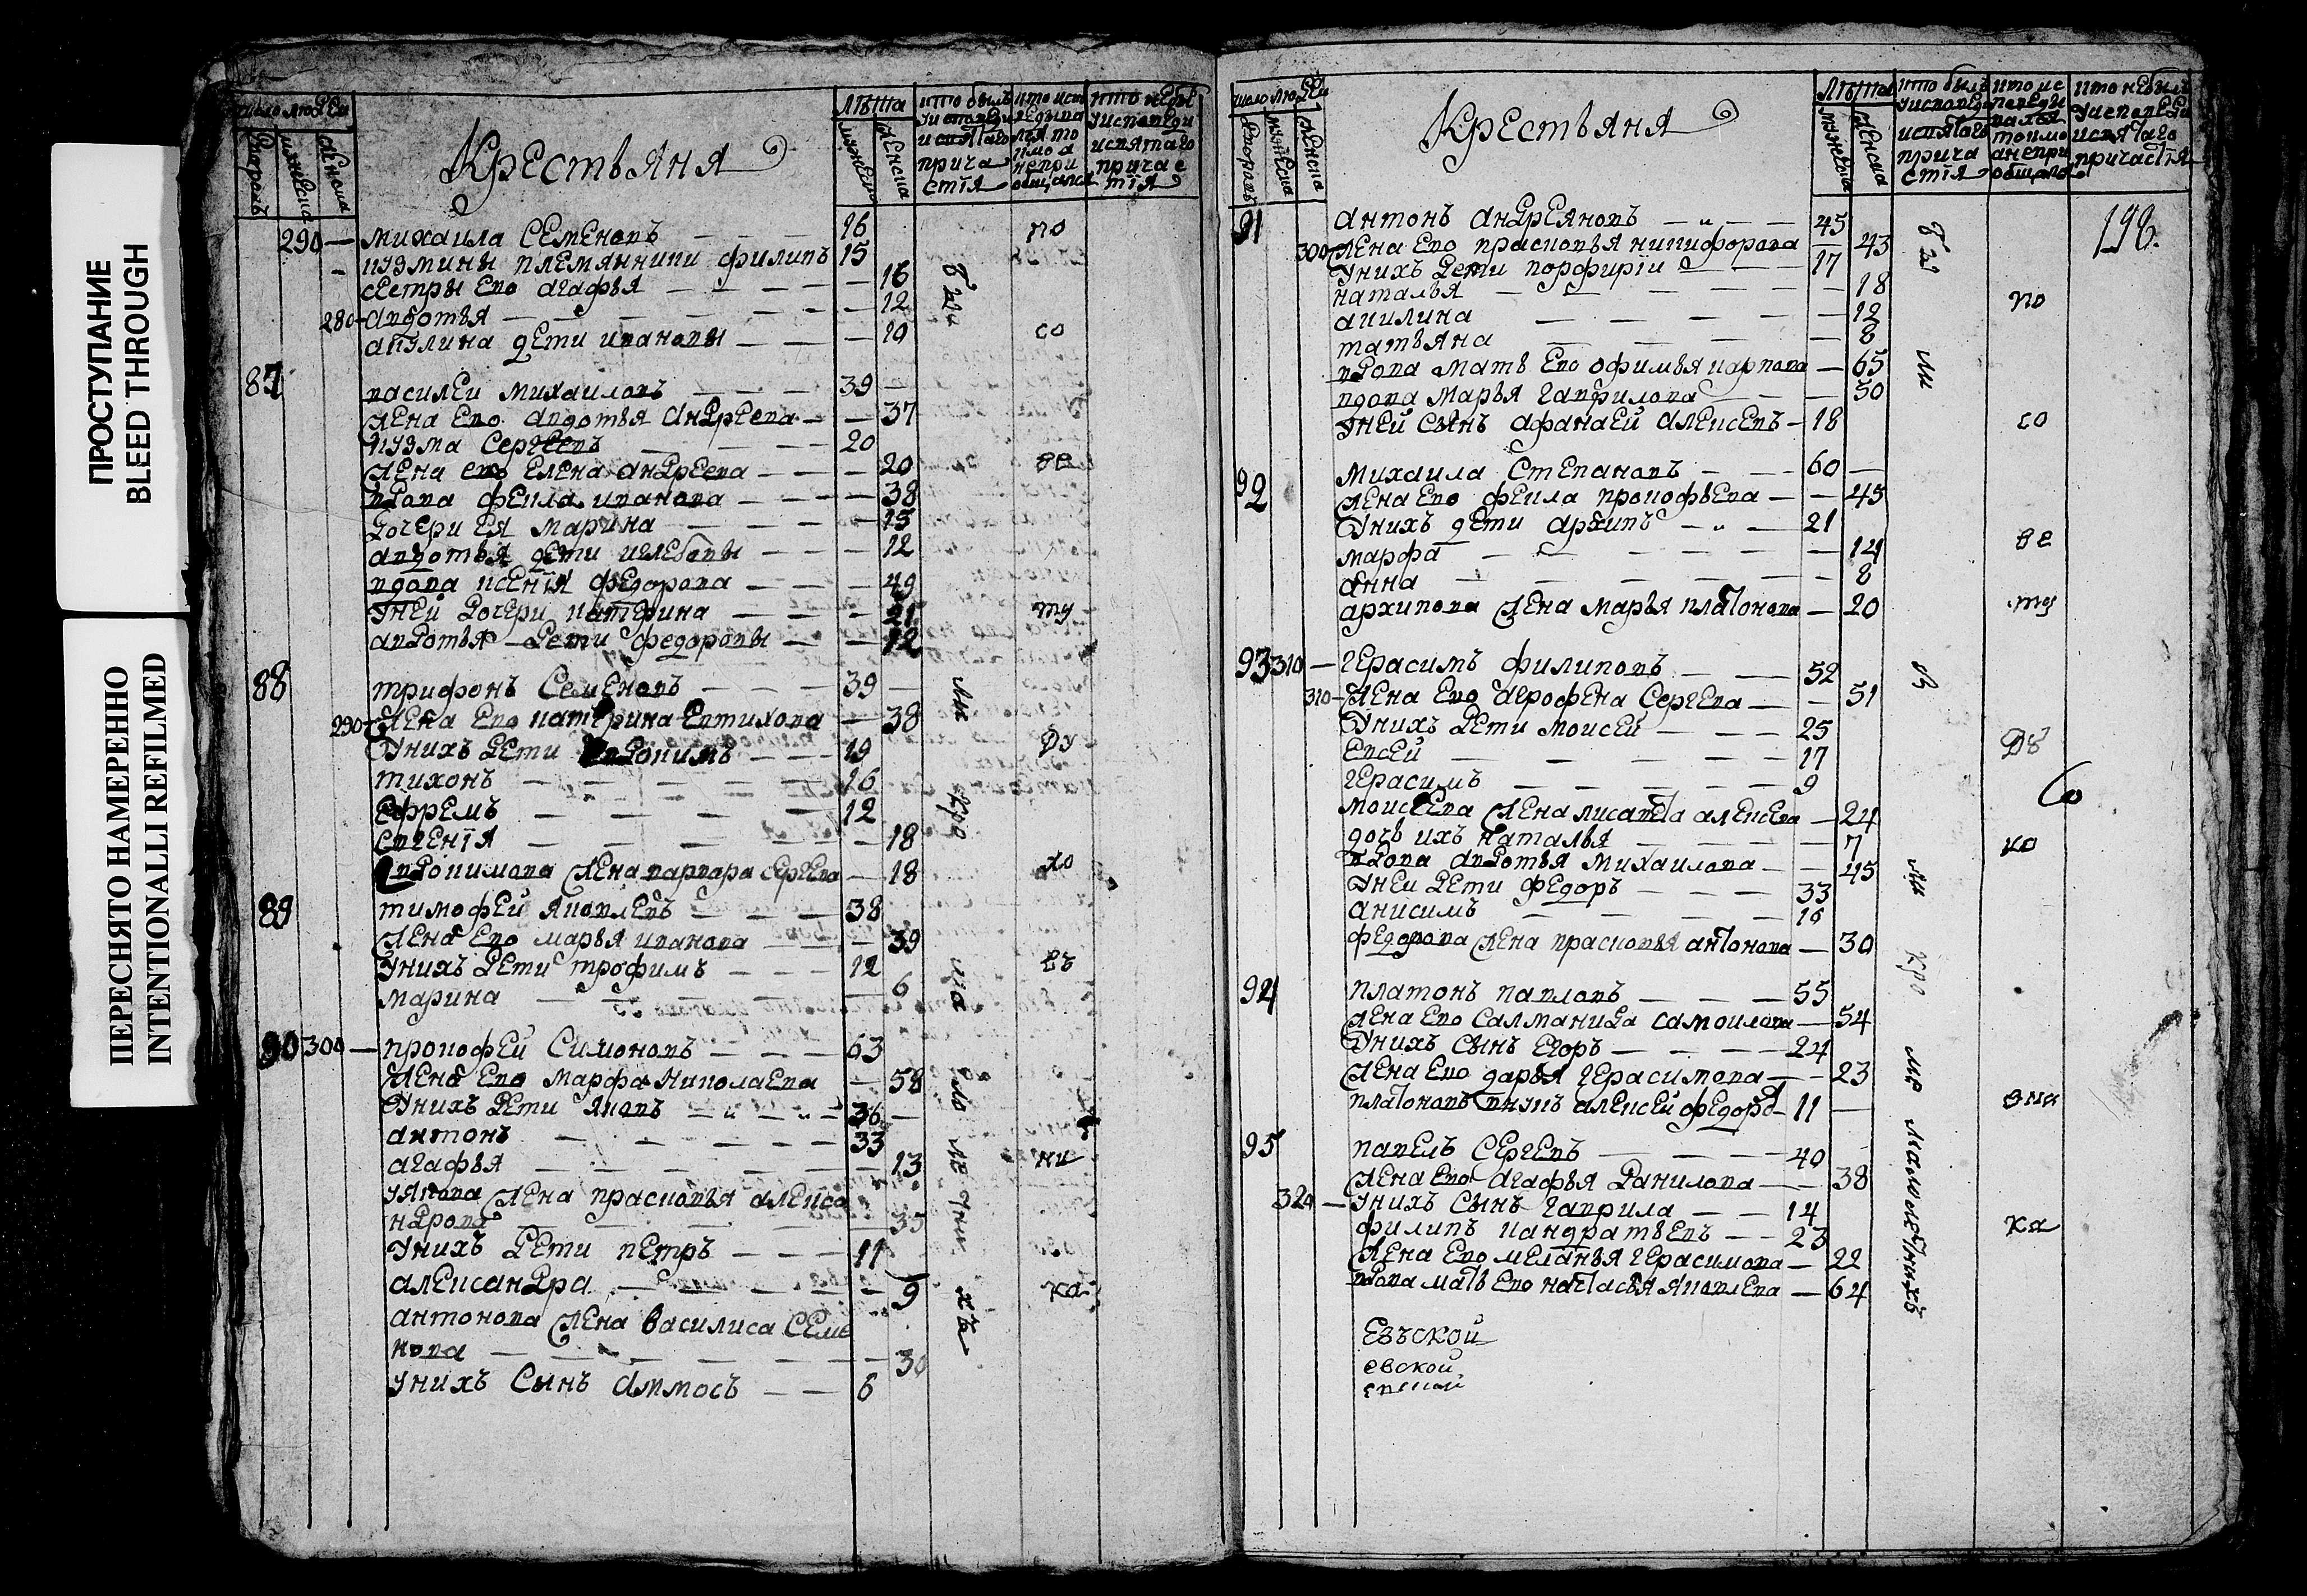 ПРОСТУПАНИЕ
BLEED THROUGH
ПЕРЕСНЯТО НАМЕРЕННО
INTENTIONALLI REFILMED
число людей
дворовъ
мужеска
женска
Крестьяня
Лѣта
мужеска
женска
кто былъ у исповеди и святаго причастїя
кто исповедывался токмо а не приобщался
кто небылъ у исповеди и святаго причастїя
290 — михаила Семеновъ — — — 16
кузмины племянники филипъ 15
сестры ево агафья — — — — 16
280 — авдотья — — — — — 12
акулина дети ивановы — — — 10
87 василеи михаиловъ — — — 39
жена ево авдотья андреева — — 37
кузма Сергеевъ — — — 20
жена ево елена андреева — — — 20
вдова фекла иванова — — — 38
дочери ея марина — — — — 15
авдотья дети глебовы — — — 12
вдова ксенїя федорова — — — 49
уней дочери катерина — — — 21
авдотья — дети федоровы — — 12
88 трифонъ Семеновъ — — — 39
290 — жена ево катерина Евтихова — 38
унихъ дети Евдокимъ — — — 19
тихонъ — — — — — 16
ефремъ — — — — 12
евгенїя — — — — — 18
Евдокимова жена варвара сергеева — 18
89 тимофей яковлевъ — — — 38
жена ево марья иванова — — — 39
унихъ дети трофимъ — — — 12
марина — — — — — 6
90 300 — прокофей Симоновъ — — — 63
жена ево марфа николаева — 58
унихъ дети яковъ — „ — „ — 36 —
антонъ — — — — — 33
агафья — — — — — 13
якова жена прасковья алекса
ндрова — — — — — 35
унихъ дети петръ — — — 11
александра — — — — — 9
антонова жена василиса Семе
нова — — — — — — 30
унихъ Сынъ Аммосъ — — 6
были
по
со
ве
ту
ли
ду
хо
въ
ни
ка
мало
ле
тни
хъ
число людей
дворовъ
мужеска
женска
Крестьяня
Лѣта
мужеска
женска
кто былъ у исповеди и святаго причастїя
кто исповедывался токмо а не приобщался
кто небылъ у исповеди и святаго причастїя
196.
91 антонъ андреяновъ — „ — — 45
300 жена ево прасковья никифорова — 43
унихъ дети порфирїи — — — 17
наталья — — — — — 18
акилина — — — — — 12
татьяна — — — — 8
вдова мать ево офимья карпова — 65
вдова марья гаврилова — — 50
уней сынъ афанасей алексевъ — 18
92 михаила Степановъ — — — 60 —
жена ево фекла прокофьева — — 45
унихъ дети архипъ — „ — 21
марфа — — — — — 14
анна — — — — — 8
архипова жена марья платонова — 20
93 310 — герасимъ филиповъ — — — 52
310 — жена ево агрофена Сергева — — 51
унихъ дети моисей — — — 25
евсей — — — — — 17
герасимъ — — — — — 9
моисеева жена лисавета алексева — 24
дочь ихъ наталья — — — — 7
вдова авдотья михаилова — — 45
уней дети федоръ — — — 33
анисимъ — — — — 16
федорова жена прасковья антонова — 30
94 платонъ павловъ — — — 55
жена ево салманида самоилова — 54
унихъ сынъ егоръ — — — — 24
жена ево дарья герасимова — — 23
платоновъ внукъ алексей федоро — 11 —
95 павелъ сергевъ — — — 40
жена ево агафья данилова — — 38
320 — унихъ сынъ гаврила — — 14
филипъ кандратьевъ — — 23
жена ево меланья герасимова — 22
вдова мать ево настасья яковлева — 64
Езъской
евской
бы
ли
по
со
ве
ту
ду
хо
вна
ка
ли
кро
мѣ
малолетнихъ